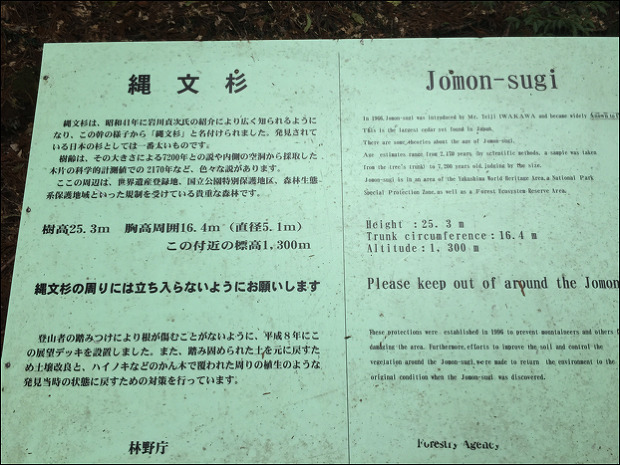 縄文杉
縄文杉は、昭和41年に岩川貞次氏の紹介により広く知られるように
なり、この幹の様子から「縄文杉」と名付けられました。発見されて
いる日本の杉としては一番太いものです。
樹齢は、その大きさによる7200年との説や内側の空洞から採取した
木片の科学的計測値での2170年など、色々な説があります。
ここの周辺は、世界遺産登録地、国立公園特別保護地区、森林生態
系保護地域といった規制を受けている貴重な森林です。
樹高25.3m 胸高周囲16.4m(直径5.1m)
この付近の標高1,300m
縄文杉の周りには立ち入らないようにお願いします
登山者の踏みつけにより根が傷むことがないように、平成8年にこ
の展望デッキを設置しました。また、踏み固められた土を元に戻すた
め土壌改良と、ハイノキなどのかん木で覆われた周りの植生のような
発見当時の状態に戻すための対策を行っています。
林野庁
Jomon-sugi
In 1966, Jomon-sugi was introduced by Mr. Teiji IWAKAWA and became widely known to
This is the largest cedar yet found in Japan.
There are some theories about the age of Jomon-sugi.
Age estimates range from 2,170 years, by scientific methods, a sample was taken
from the tree's trunk) to 7,200 years old, judging by the size.
Jomon-sugi is in an area of the Yakushima World Heritage Area, a National Park
Special Protection Zone, as well as a Forest Ecosystem Reserve Area.
Height : 25. 3 m
Trunk circumference : 16. 4 m
Altitude : 1, 300 m
Please keep out of around the Jomon
These protections were established in 1996 to prevent mountaineers and others
damaging the area. Furthermore, efforts to improve the soil and control the
vegetation around the Jomon-sugi were made to return the environment to the
original condition when the Jomon-sugi was discovered.
Forestry Agency